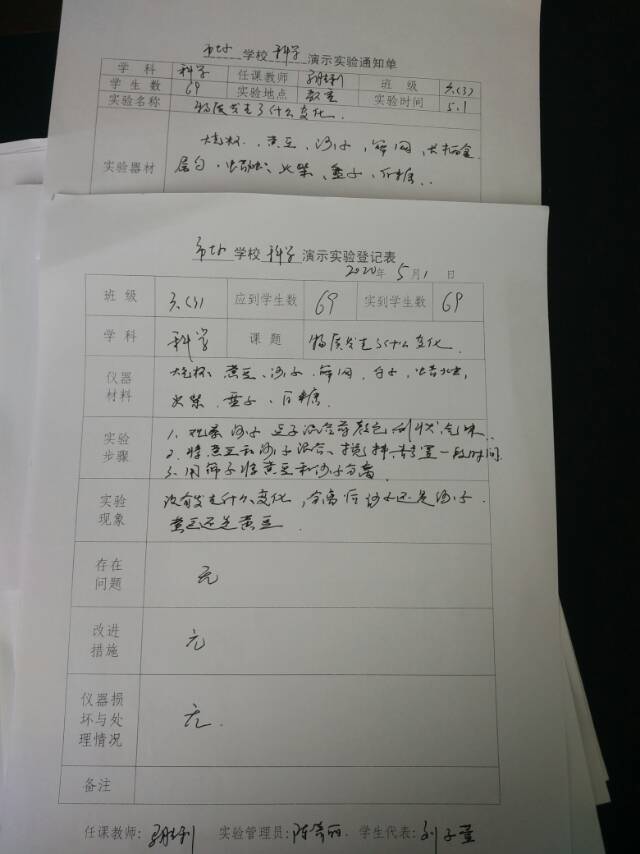 学校 科学 演示实验通知单
学科 科学 任课教师 班级 六(3)
学生数 69 实验地点 教室 实验时间 5.1
实验名称 物质发生了什么变化.
实验器材 烧杯、黄豆、沙子、筛网、火柴盒
、蜡烛、火柴、盘子、白糖.
学校 科学 演示实验登记表
2020年 5月1日
班级 六(3) 应到学生数 69 实到学生数 69
学科 科学 课题 物质发生了什么变化.
仪器材料 烧杯、黄豆、沙子、筛网、勺子、蜡烛、
火柴、盘子、白糖.
实验步骤 1. 观察沙子、豆子混合前颜色形状气味.
2. 将黄豆和沙子混合、搅拌、静置一段时间.
3. 用筛子将黄豆和沙子分离
实验现象 没有发生什么变化,分离后沙子还是沙子.
黄豆还是黄豆
存在问题 无
改进措施 无
仪器损坏与处理情况 无.
备注
任课教师: 实验管理员: 学生代表: